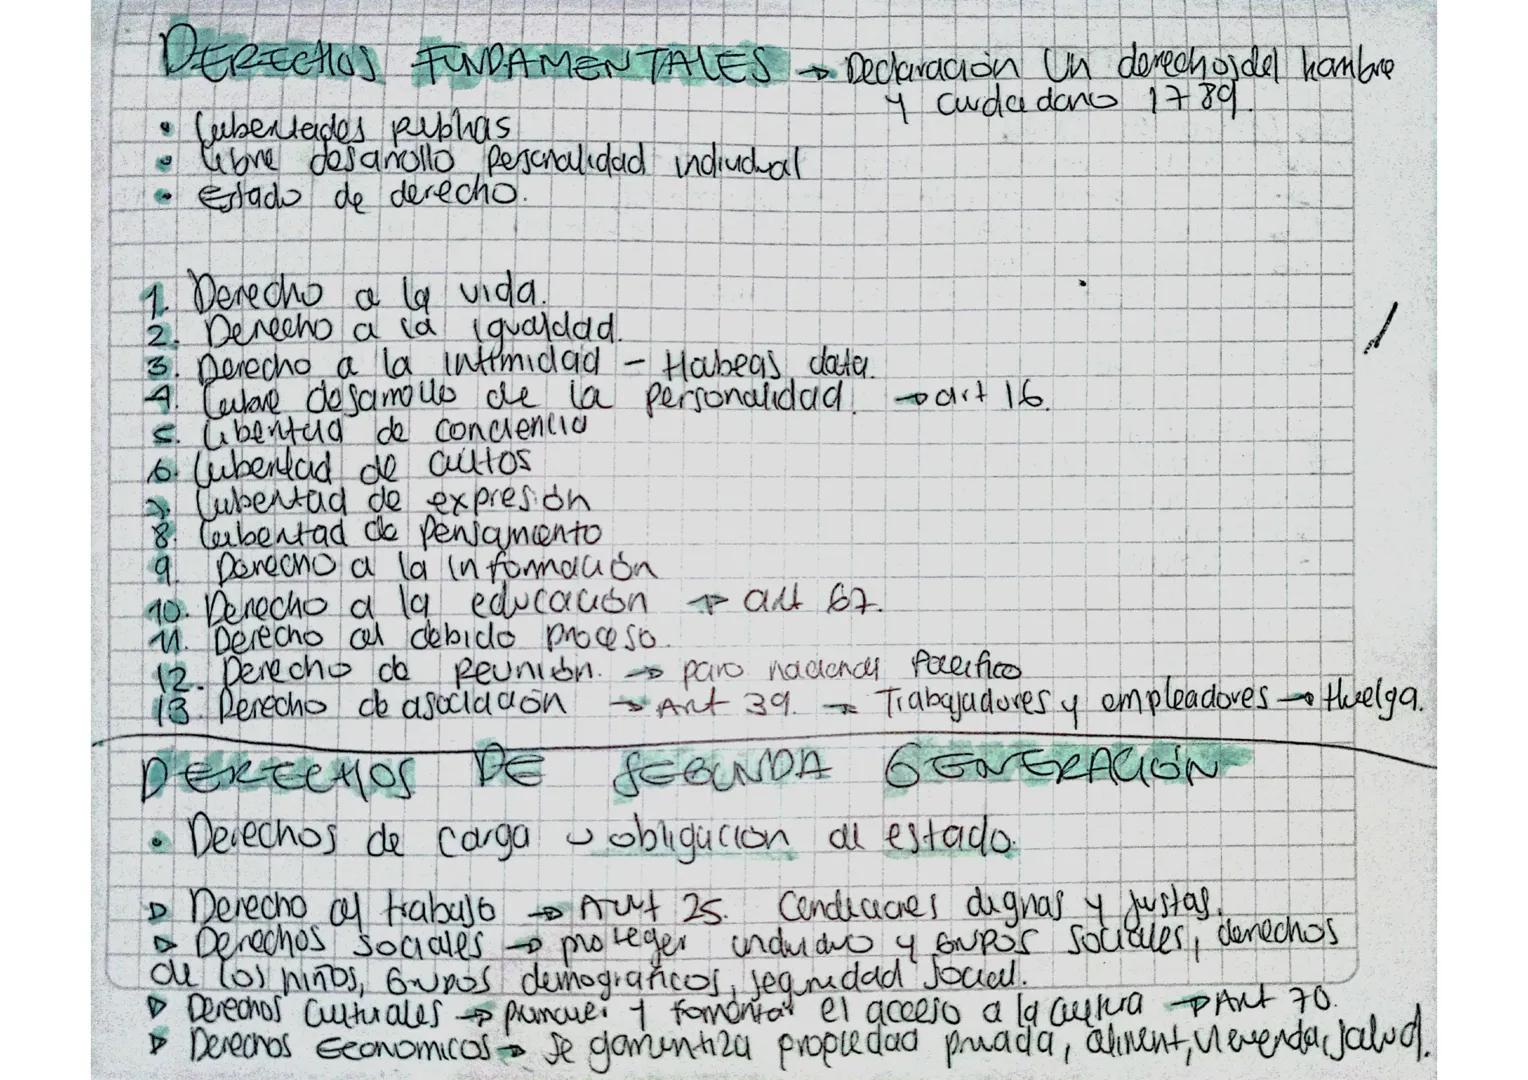 DERECHOS FUNDAMENTALES → Declaración Un derechos del hombre
y ciudadano 1789.
• Libertades publicas
• Libre desarrollo personalidad individual
• Estado de derecho.
1. Derecho a la vida.
2. Derecho a la igualdad.
3. Derecho a la intimidad - Habeas data.
4. Libre desarrollo de la personalidad. → art 16.
5. Libertad de conciencia
6. Libertad de cultos
7. Libertad de expresión
8 Libertad de pensamiento
9. Derecho a la información
10. Derecho a la educación → art 67.
11. Derecho al debido proceso.
12. Derecho de Reunión. → paro nacional Pacifico
13. Derecho de asociación → Art 39. → Trabajadores y empleadores → Huelga.
DERECHOS DE SEGUNDA GENERACIÓN
• Derechos de carga u obligacion al estado.
▷ Derecho al trabajo → Art 25. Condiciones dignas y justas.
▷ Derechos sociales → proteger individuo y Grupos sociales, derechos
de los niños, Grupos demograficos, seguridad social.
▷ Derechos Culturales → promover y fomentar el acceso a la cultura → Art 70.
▷ Derechos Economicos → Se garantiza propiedad privada, aliment, vivienda, salud.